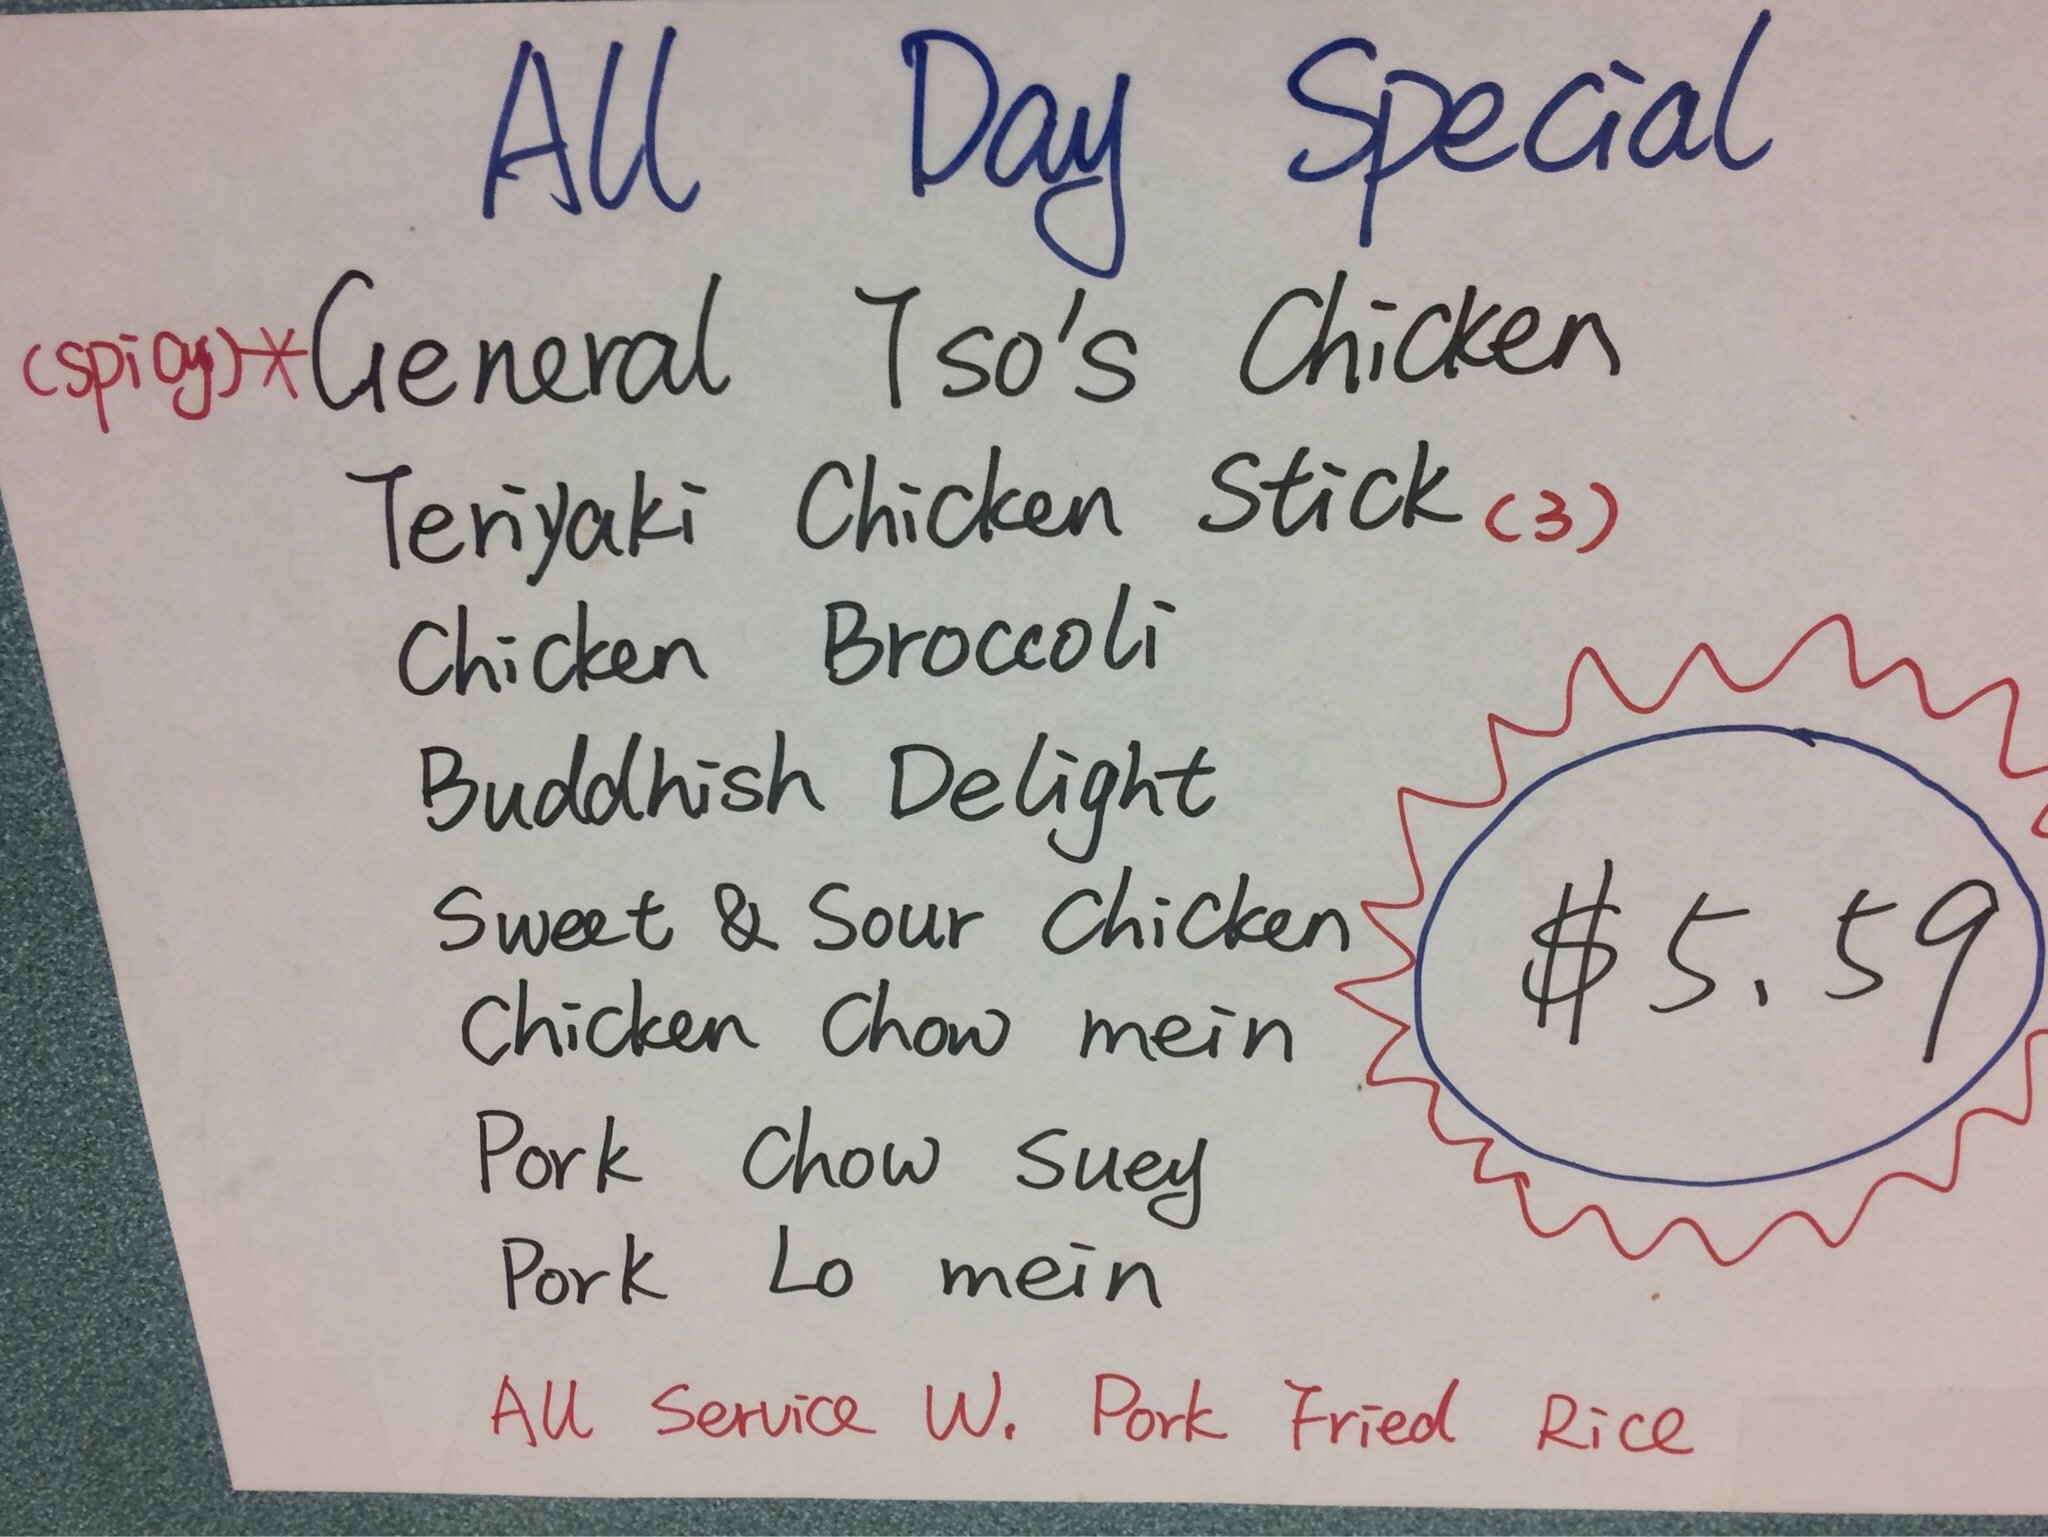 All Day Special
(spicy)*General Tso's Chicken
Teriyaki Chicken Stick (3)
Chicken Broccoli
Buddhish Delight
Sweet & Sour Chicken
Chicken Chow mein
$5.59
Pork Chow Suey
Pork Lo mein
All Service W. Pork Fried Rice